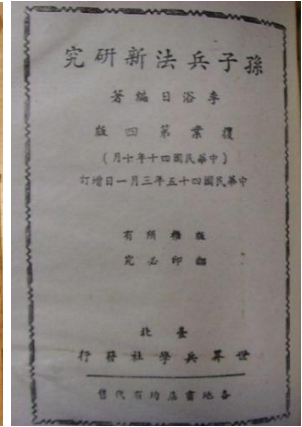 孫子兵法新研究
李浴日編著
復業第四版
（中華民國四十年十月）
中華民國四十五年三月一日增訂
版權所有
翻印必究
臺北
世界兵學社發行
各地書店均有代售